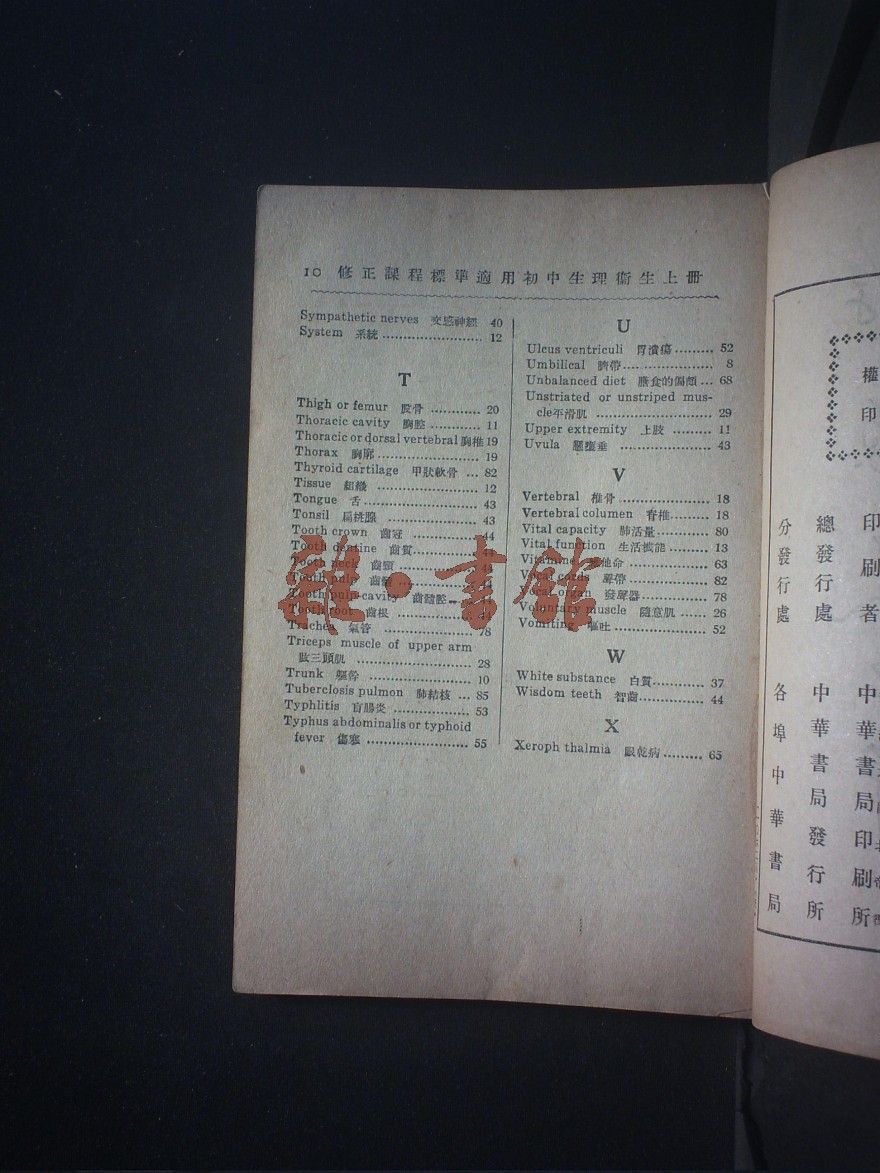 10 修正課程標準適用初中生理衞生上冊
Sympathetic nerves 交感神經 40
System 系統 12
T
Thigh or femur 股骨 20
Thoracic cavity 胸腔 11
Thoracic or dorsal vertebral 胸椎 19
Thorax 胸廓 19
Thyroid cartilage 甲狀軟骨 82
Tissue 組織 12
Tongue 舌 43
Tonsil 扁桃腺 43
Tooth crown 齒冠 44
Tooth dentine 齒質
Tooth neck 齒頸
Tooth pulp
Tooth pulp cavity 齒髓腔
Tooth root 齒根
Trachea 氣管 78
Triceps muscle of upper arm
肱三頭肌 28
Trunk 軀幹 10
Tuberclosis pulmon 肺結核 85
Typhlitis 盲腸炎 53
Typhus abdominalis or typhoid
fever 傷寒 55
U
Ulcus ventriculi 胃潰瘍 52
Umbilical 臍帶 8
Unbalanced diet 膳食的偏頗 68
Unstriated or unstriped mus-
cle 平滑肌 29
Upper extremity 上肢 11
Uvula 懸壅垂 43
V
Vertebral 椎骨 18
Vertebral columen 脊椎 18
Vital capacity 肺活量 80
Vital function 生活機能 13
Vitamine 維他命 63
Vocal cords 聲帶 82
Vocal organ 發聲器 78
Voluntary muscle 隨意肌 26
Vomiting 嘔吐 52
W
White substance 白質 37
Wisdom teeth 智齒 44
X
Xeroph thalmia 眼乾病 65
龍·書館
權
印
印刷者 中華書局印刷所
總發行處 中華書局發行所
分發行處 各埠中華書局